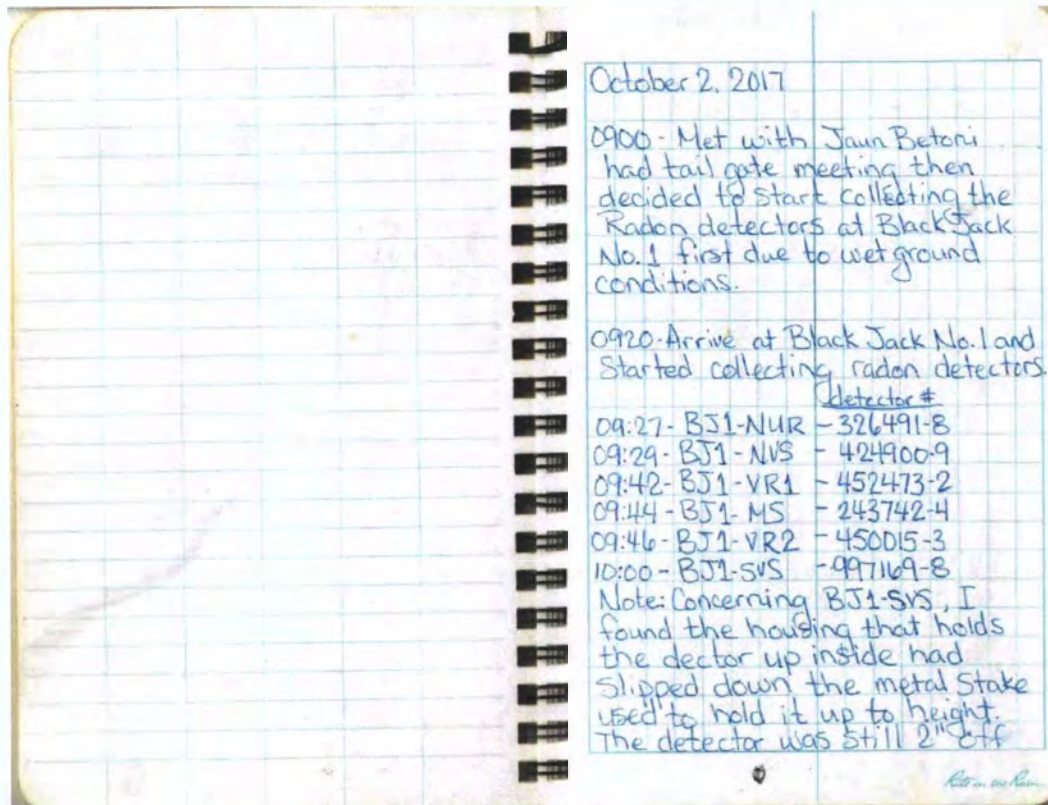 October 2, 2017
0900 - Met with Jaun Betoni
had tail gate meeting then
decided to start collecting the
Radon detectors at Black Jack
No. 1 first due to wet ground
conditions.
0920 - Arrive at Black Jack No. 1 and
Started collecting radon detectors
detector #
09:27 - BJ1-NUR - 326491-8
09:29 - BJ1-NVS - 424900-9
09:42 - BJ1-VR1 - 452473-2
09:44 - BJ1-MS - 243742-4
09:46 - BJ1-VR2 - 450015-3
10:00 - BJ1-SVS - 997169-8
Note: Concerning BJ1-SVS, I
found the housing that holds
the dector up inside had
Slipped down the metal Stake
used to hold it up to height.
The detector was still 2" off
Rite in the Rain